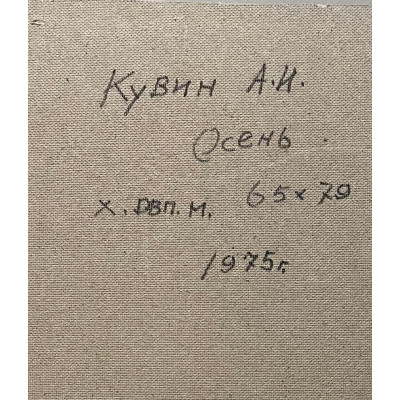 Кувин А.И.
Осень.
х. двп. м. 65x79
1975г.